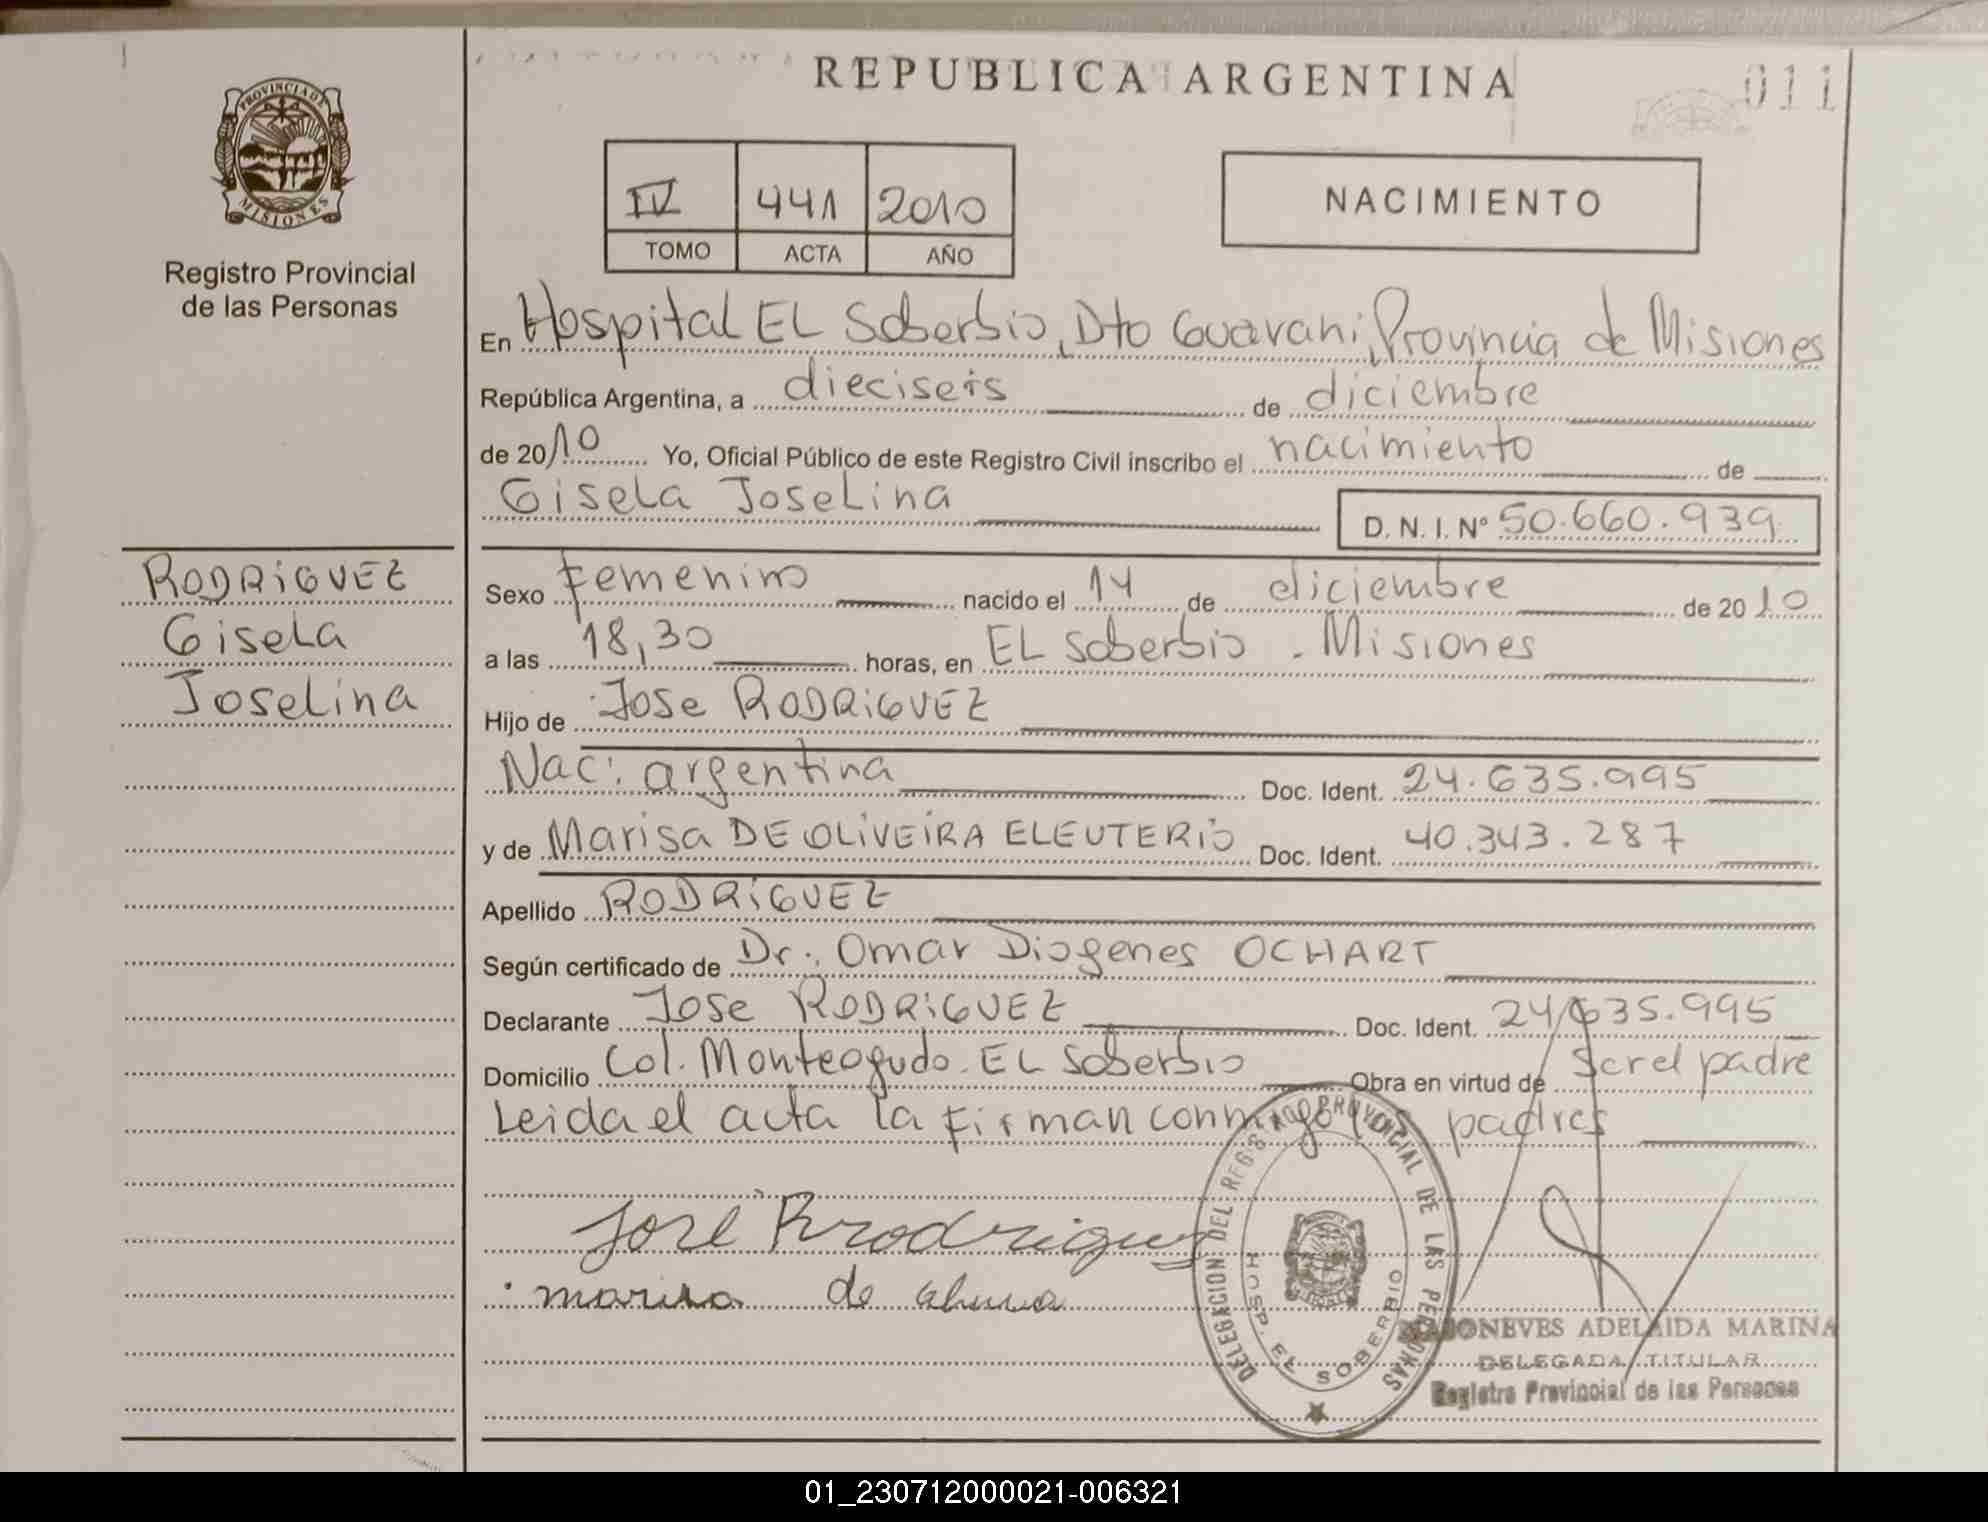 REPUBLICA ARGENTINA
011
PROVINCIA DE MISIONES
Registro Provincial
de las Personas
IV 441 2010
TOMO ACTA AÑO
NACIMIENTO
En Hospital EL Soberbio, Dto Guarani, Provincia de Misiones
República Argentina, a dieciseis de diciembre
de 2010 Yo, Oficial Público de este Registro Civil inscribo el nacimiento de
Gisela Joselina
D. N. I. Nº 50.660.939
RODRiGUEZ
Gisela
Joselina
Sexo Femenino nacido el 14 de diciembre de 2010
a las 18,30 horas, en EL Soberbio - Misiones
Hijo de Jose RODRiGUEZ
Nac: argentina Doc. Ident. 24.635.995
y de Marisa DE OLiVEiRA ELEUTERiO Doc. Ident. 40.343.287
Apellido RODRiGUEZ
Según certificado de Dr. Omar Diogenes OCHART
Declarante Jose RODRiGUEZ Doc. Ident. 24.635.995
Domicilio Col. Monteagudo. EL Soberbio Obra en virtud de Ser el padre
Leida el acta la firman conmigo los padres
José Rrodriguez
marisa de
DELEGACION DEL REGISTRO PROVINCIAL DE LAS PERSONAS
HOSP. EL SOBERBIO
ADELAIDA MARINA
DELEGADA TITULAR
Registro Provincial de las Personas
01_230712000021-006321